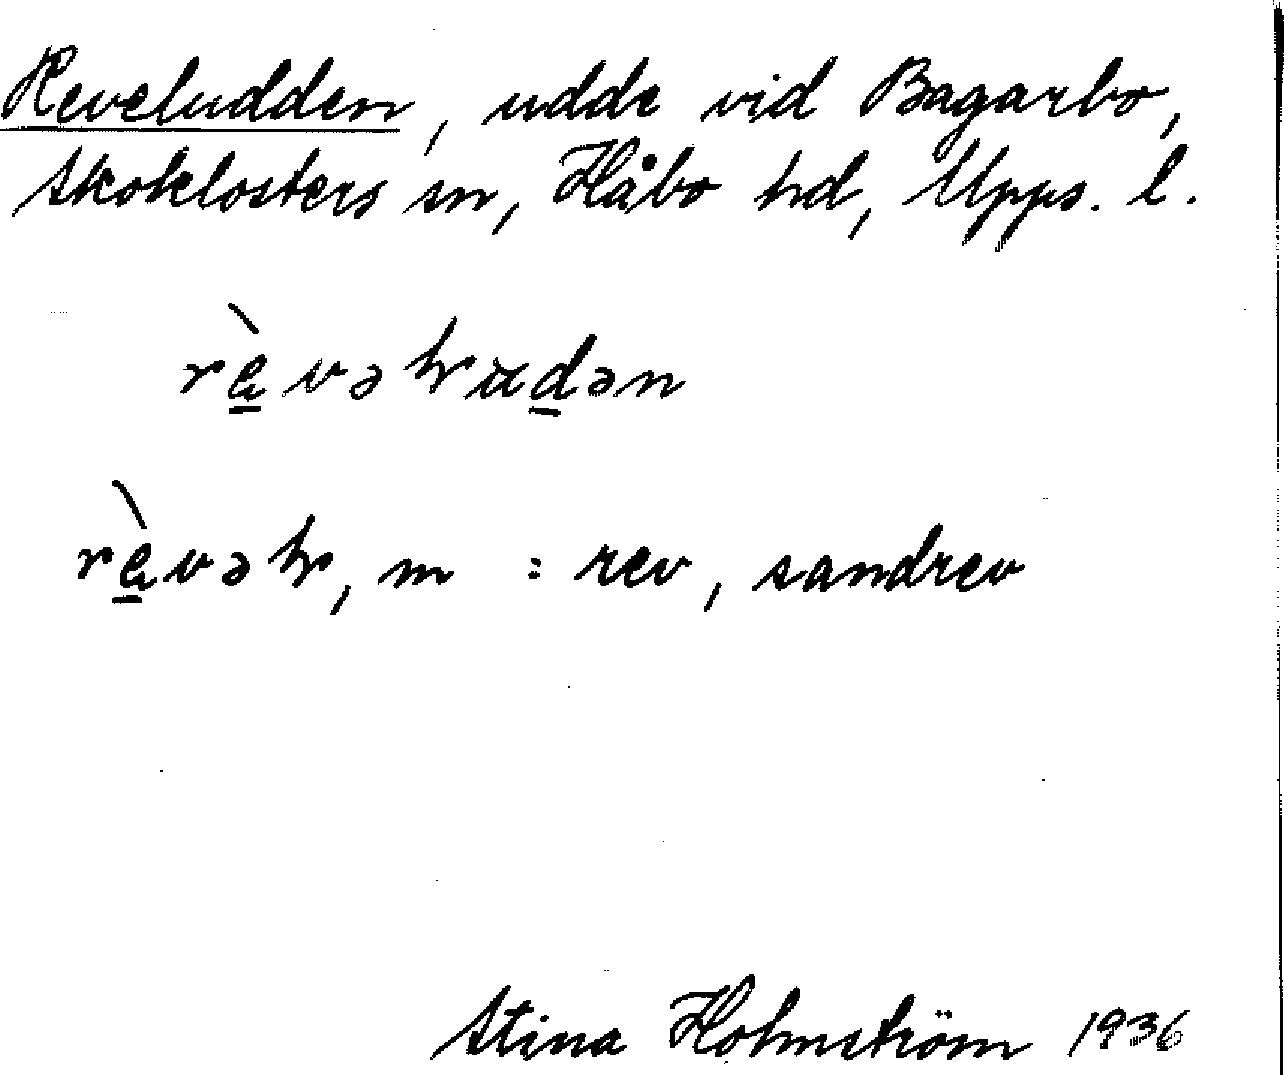 Reveludden, udde vid Bagarbo,
Skoklosters sn, Håbo hd, Upps. l.
rèvəɽudən
rèvəɽ, m = rev, sandrev
Stina Holmström 1936